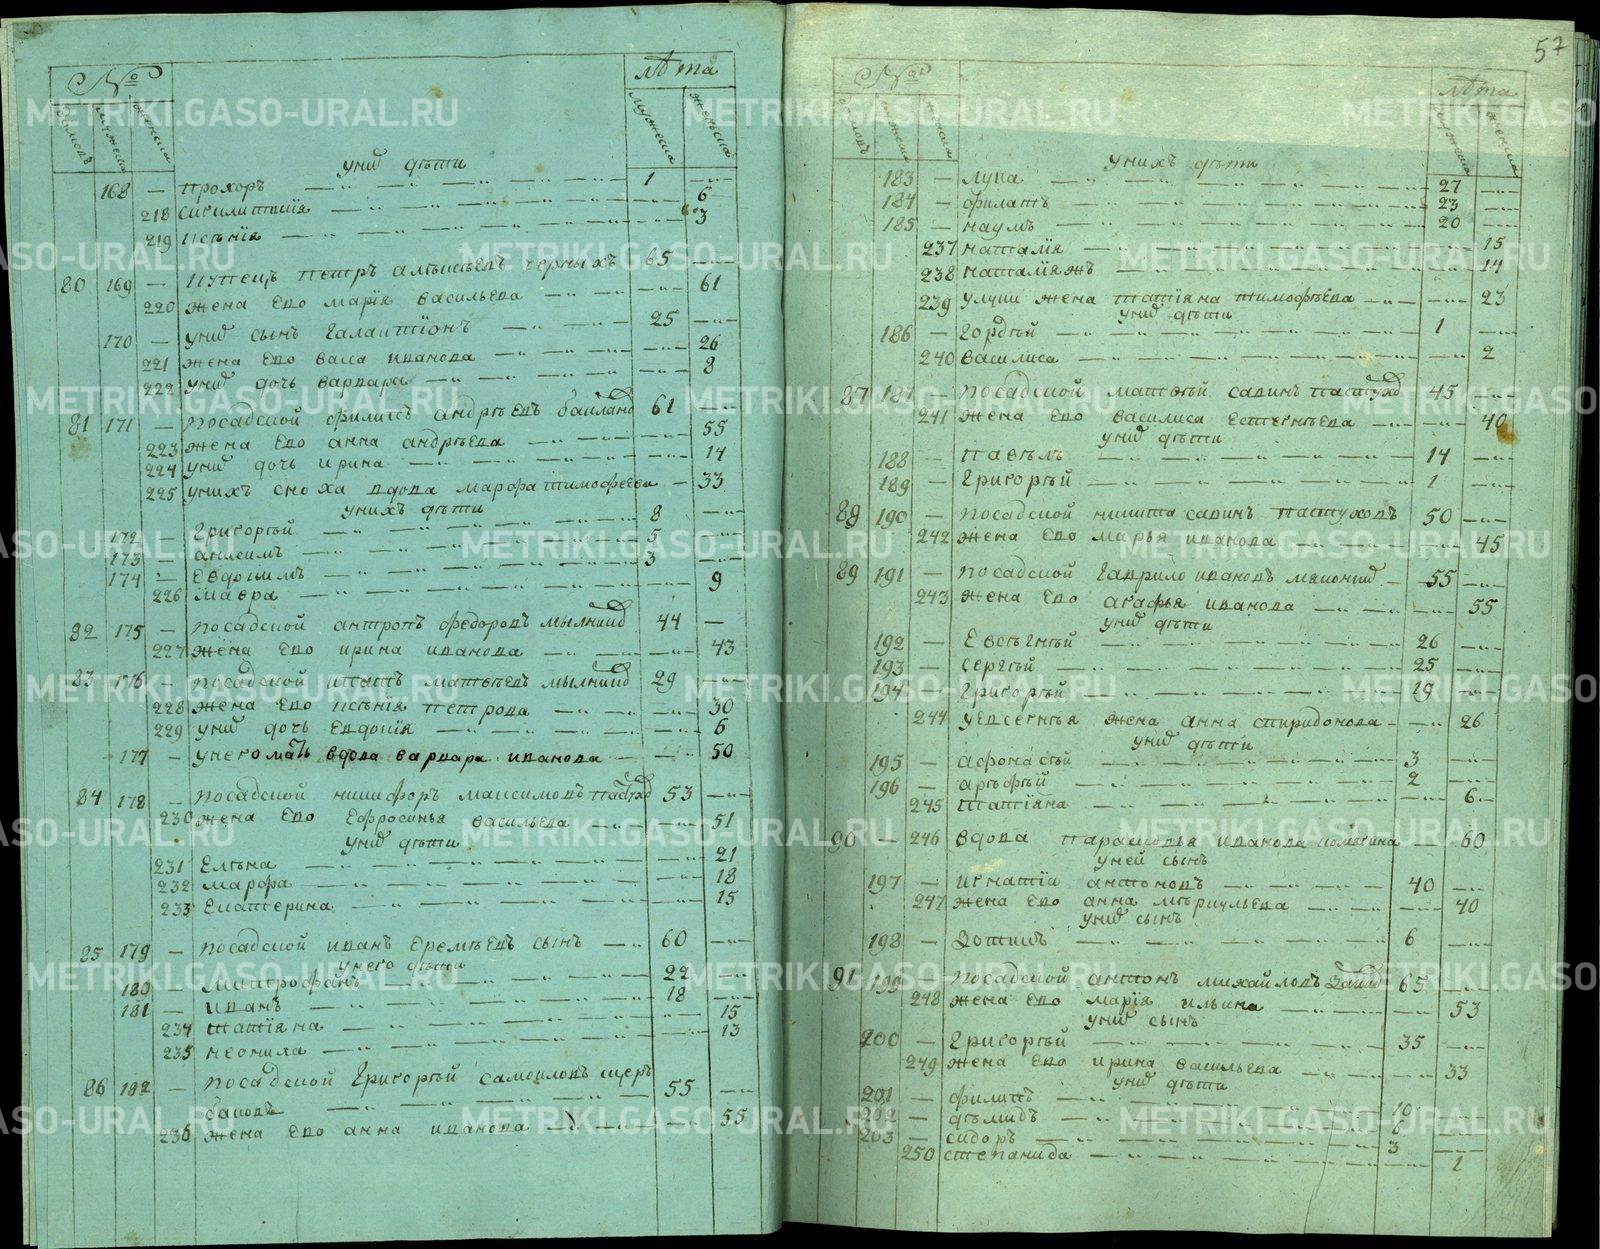 №
лѣта
домовъ мужеска женска
мужеска женска
унихъ дѣти
168 — прохоръ — 1 —
218 — 6
219 ксѣнїя — 3
80 169 — купецъ петръ алѣксѣевъ черныхъ 65 —
220 жена ево марїя васильева — 61
170 — унихъ сынъ галактїонъ — 25 —
221 жена ево васса иванова — 26
222 унихъ дочь варвара — 8
81 171 — посадской филипъ андрѣевъ 61 —
223 жена ево анна андрѣева — 55
224 унихъ дочь ирина — 14
225 унихъ сноха вдова марфа тимофѣева — 33
унихъ дѣти
172 — григорѣй — 8 —
173 — анисимъ — 5 —
174 — евдокимъ — 3 —
226 мавра — 9
82 175 — посадской антропъ федоровъ мылниковъ 44 —
227 жена ево ирина иванова — 43
83 176 — посадской ипатъ матвѣевъ мылниковъ 29 —
228 жена ево ксѣнїя петрова — 30
229 унихъ дочь евдокїя — 6
177 — унего мать вдова варвара иванова — 50
84 178 — посадской никифоръ максимовъ пастуховъ 53 —
230 жена ево ефросинья васильева — 51
унихъ дѣти
231 елѣна — 21
232 марфа — 18
233 екатерина — 15
85 179 — посадской иванъ еремѣевъ сынъ — 60 —
унего дѣти
180 митрофанъ — 22 —
181 — иванъ — 18 —
234 татїяна — 15
235 неонила — 13
86 182 — посадской григорѣй самоиловъ щер
баковъ — 55 —
236 жена ево анна иванова — 55
57
№
лѣта
домовъ мужеска женска
мужеска женска
унихъ дѣти
183 — лука — 27 —
184 — филатъ — 23 —
185 — наумъ — 20 —
237 наталїя — 15
238 наталїяжъ — 14
239 улуки жена татїяна тимофѣева — 23
унихъ дѣти
186 — гордѣй — 1 —
240 василиса — 2
87 187 — посадской матвѣй савинъ пастуховъ 45 —
241 жена ево василиса евстегнѣева — 40
унихъ дѣти
188 — павѣлъ — 14 —
189 — григорѣй — 1 —
88 190 — посадской никита савинъ пастуховъ 50 —
242 жена ево марья иванова — 45
89 191 — посадской гаврило ивановъ — 55 —
243 жена ево агафья иванова — 55
унихъ дѣти
192 — евсѣгнѣй — 26 —
193 — сергѣй — 25 —
194 — григорѣй — 19 —
244 уевсегнѣя жена анна спиридонова — 26
унихъ дѣти
195 — афонасѣй — 3 —
196 — арѣфѣй — 2 —
245 татїяна — 6
90 — 246 вдова парасковья иванова — 60
уней сынъ
197 — игнатїи антоновъ — 40 —
247 жена ево анна мѣркульева — 40
унихъ сынъ
198 — 6 —
91 199 посадской антонъ михайловъ 65 —
248 жена ево марїя ильина — 53
унихъ сынъ
200 — григорѣй — 35 —
249 жена ево ирина васильева — 33
унихъ дѣти
201 — филипъ — 10 —
202 — дѣмидъ — 6 —
203 — сидоръ — 3 —
250 степанида — 1
METRIKI.GASO-URAL.RU